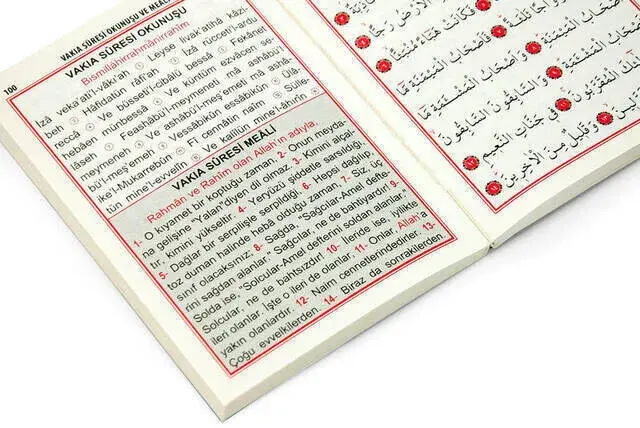 100
VAKIA SÛRESİ OKUNUŞU VE MEALİ
VAKIA SÛRESİ OKUNUŞU
Bismillâhirrahmânirrahîm
İzâ veka'ati'l-vâkı'ah ① Leyse livak'atihâ kâzi-
beh ② Hâfidatün râfi'ah ③ İzâ rücceti'l-ardu
reccâ ④ Ve büsseti'l-cibâlü bessâ ⑤ Fekânet
hebâen münbessâ ⑥ Ve küntüm ezvâcen se-
lâseh ⑦ Feashâbü'l-meymeneti mâ ashâbü'l-
meymeneh ⑧ Ve ashâbü'l-meş'emeti mâ ashâ-
bü'l-meş'emeh ⑨ Vessâbikûn essâbikûn ⑩ Ülâ-
ike'l-Mukarrebûn ⑪ Fî cennâtin naîm ⑫ Sülle-
tün mine'l-evvelîn ⑬ Ve kalîlün mine'l-âhirîn ⑭
VAKIA SÛRESİ MEALİ
Rahmân ve Rahîm olan Allah'ın adıyla.
1- O kıyamet bir koptuğu zaman, 2- Onun meyda-
na gelişine "Yalan"diyen dil olmaz. 3- Kimini alçal-
tır, kimini yükseltir. 4- Yeryüzü şiddetle sarsıldığı,
5- Dağlar bir serpilişle serpildiği 6- Hepsi dağılıp,
toz duman halinde hebâ olduğu zaman. 7- Siz, üç
sınıf olacaksınız; 8- Sağda, "Sağcılar-Amel defte-
rini sağdan alanlar." Sağcılar, ne de bahtiyardır! 9-
Solda ise, "Solcular-Amel defterini soldan alanlar."
Solcular, ne de bahtsızdır! 10- İleride ise, iyilikte
ileri olanlar. İşte o ileri de olanlar. 11- Onlar, Allah'a
yakın olanlardır. 12- Naim cennetlerindedirler. 13-
Çoğu evvelkilerden. 14- Biraz da sonrakilerden.
الْأَرْضُ رَجًّا
فَكَانَتْ هَبَاءً مُنْبَثًّا
فَأَصْحَابُ الْمَيْمَنَةِ مَا
وَأَصْحَابُ الْمَشْئَمَةِ مَا
وَالسَّابِقُونَ السَّابِقُونَ
الْمُقَرَّبُونَ فِي جَنَّاتِ النَّعِيمِ
وَقَلِيلٌ مِنَ الْآخِرِينَ